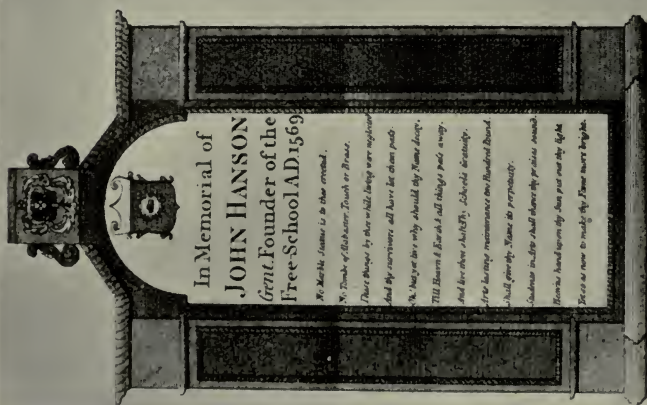 In Memorial of
JOHN HANSON
Gent. Founder of the
Free-School AD. 1569
No Marble Statue is to thee erected.
No Tombe of Alabaster, Touch or Brass.
These things by thee while living were neglected
And thy survivors all have let them pass.
but yet live why should thy Name decay.
Till Heaven & Earth & all things pass away.
And live thou shalt Thy Schoole's
Arts lasting maintenance two Hundred Pound
Shall give thy Name its perpetuity.
Students in Arts shall thy praises sound.
Heav'ns hand upon thee hath put out thy light
as now to make thy Fame more bright.